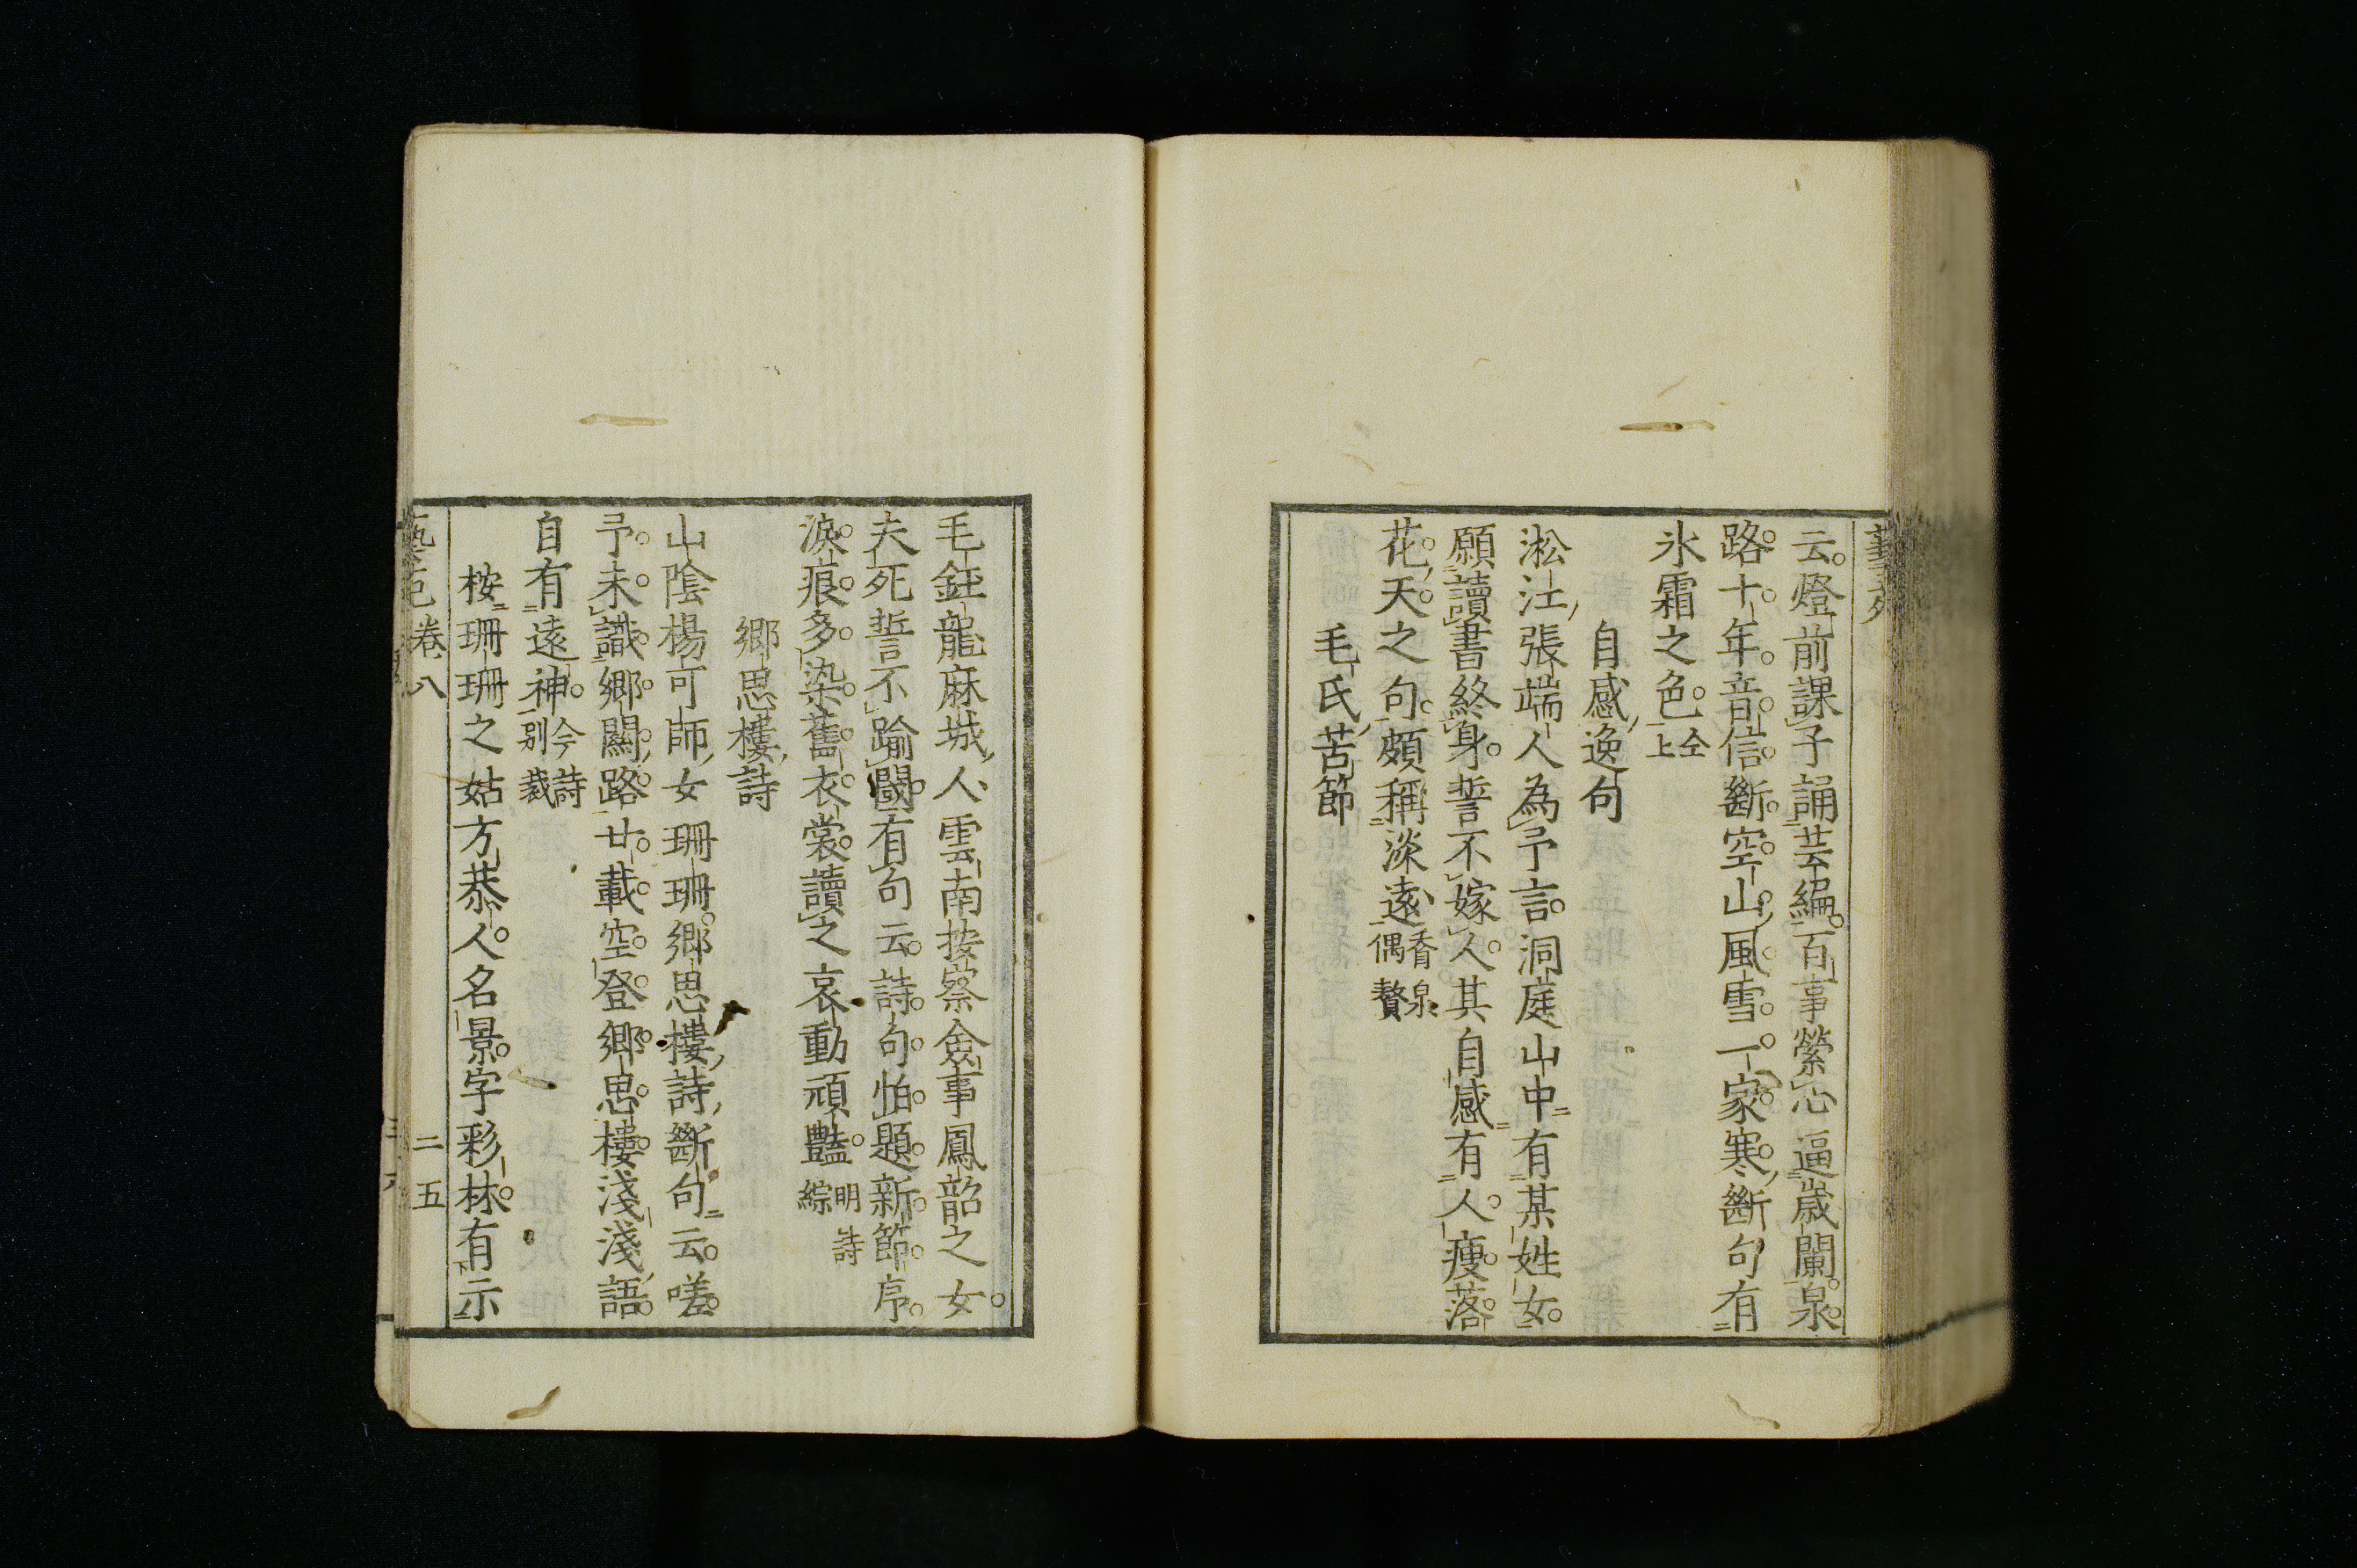 云燈前課子誦芸編百事縈心逼歲闌泉
路十年音信斷空山風雪一家寒斷句有
氷霜之色仝上
自感逸句
淞江張端人為予言洞庭山中有某姓女
願讀書終身誓不嫁人其自感有人瘦落
花天之句頗稱淡遠香泉偶贅
毛氏苦節
毛鈺龍麻城人雲南按察僉事鳳韶之女
夫死誓不踰閾有句云詩句怕題新節序
淚痕多染舊衣裳讀之哀動頑豔明詩綜
鄉思樓詩
山陰楊可師女珊珊鄉思樓詩斷句云嗟
予未識鄉關路廿載空登鄉思樓淺淺語
自有遠神今詩別裁
桉珊珊之姑方恭人名景字彩林有示
卷八
二五